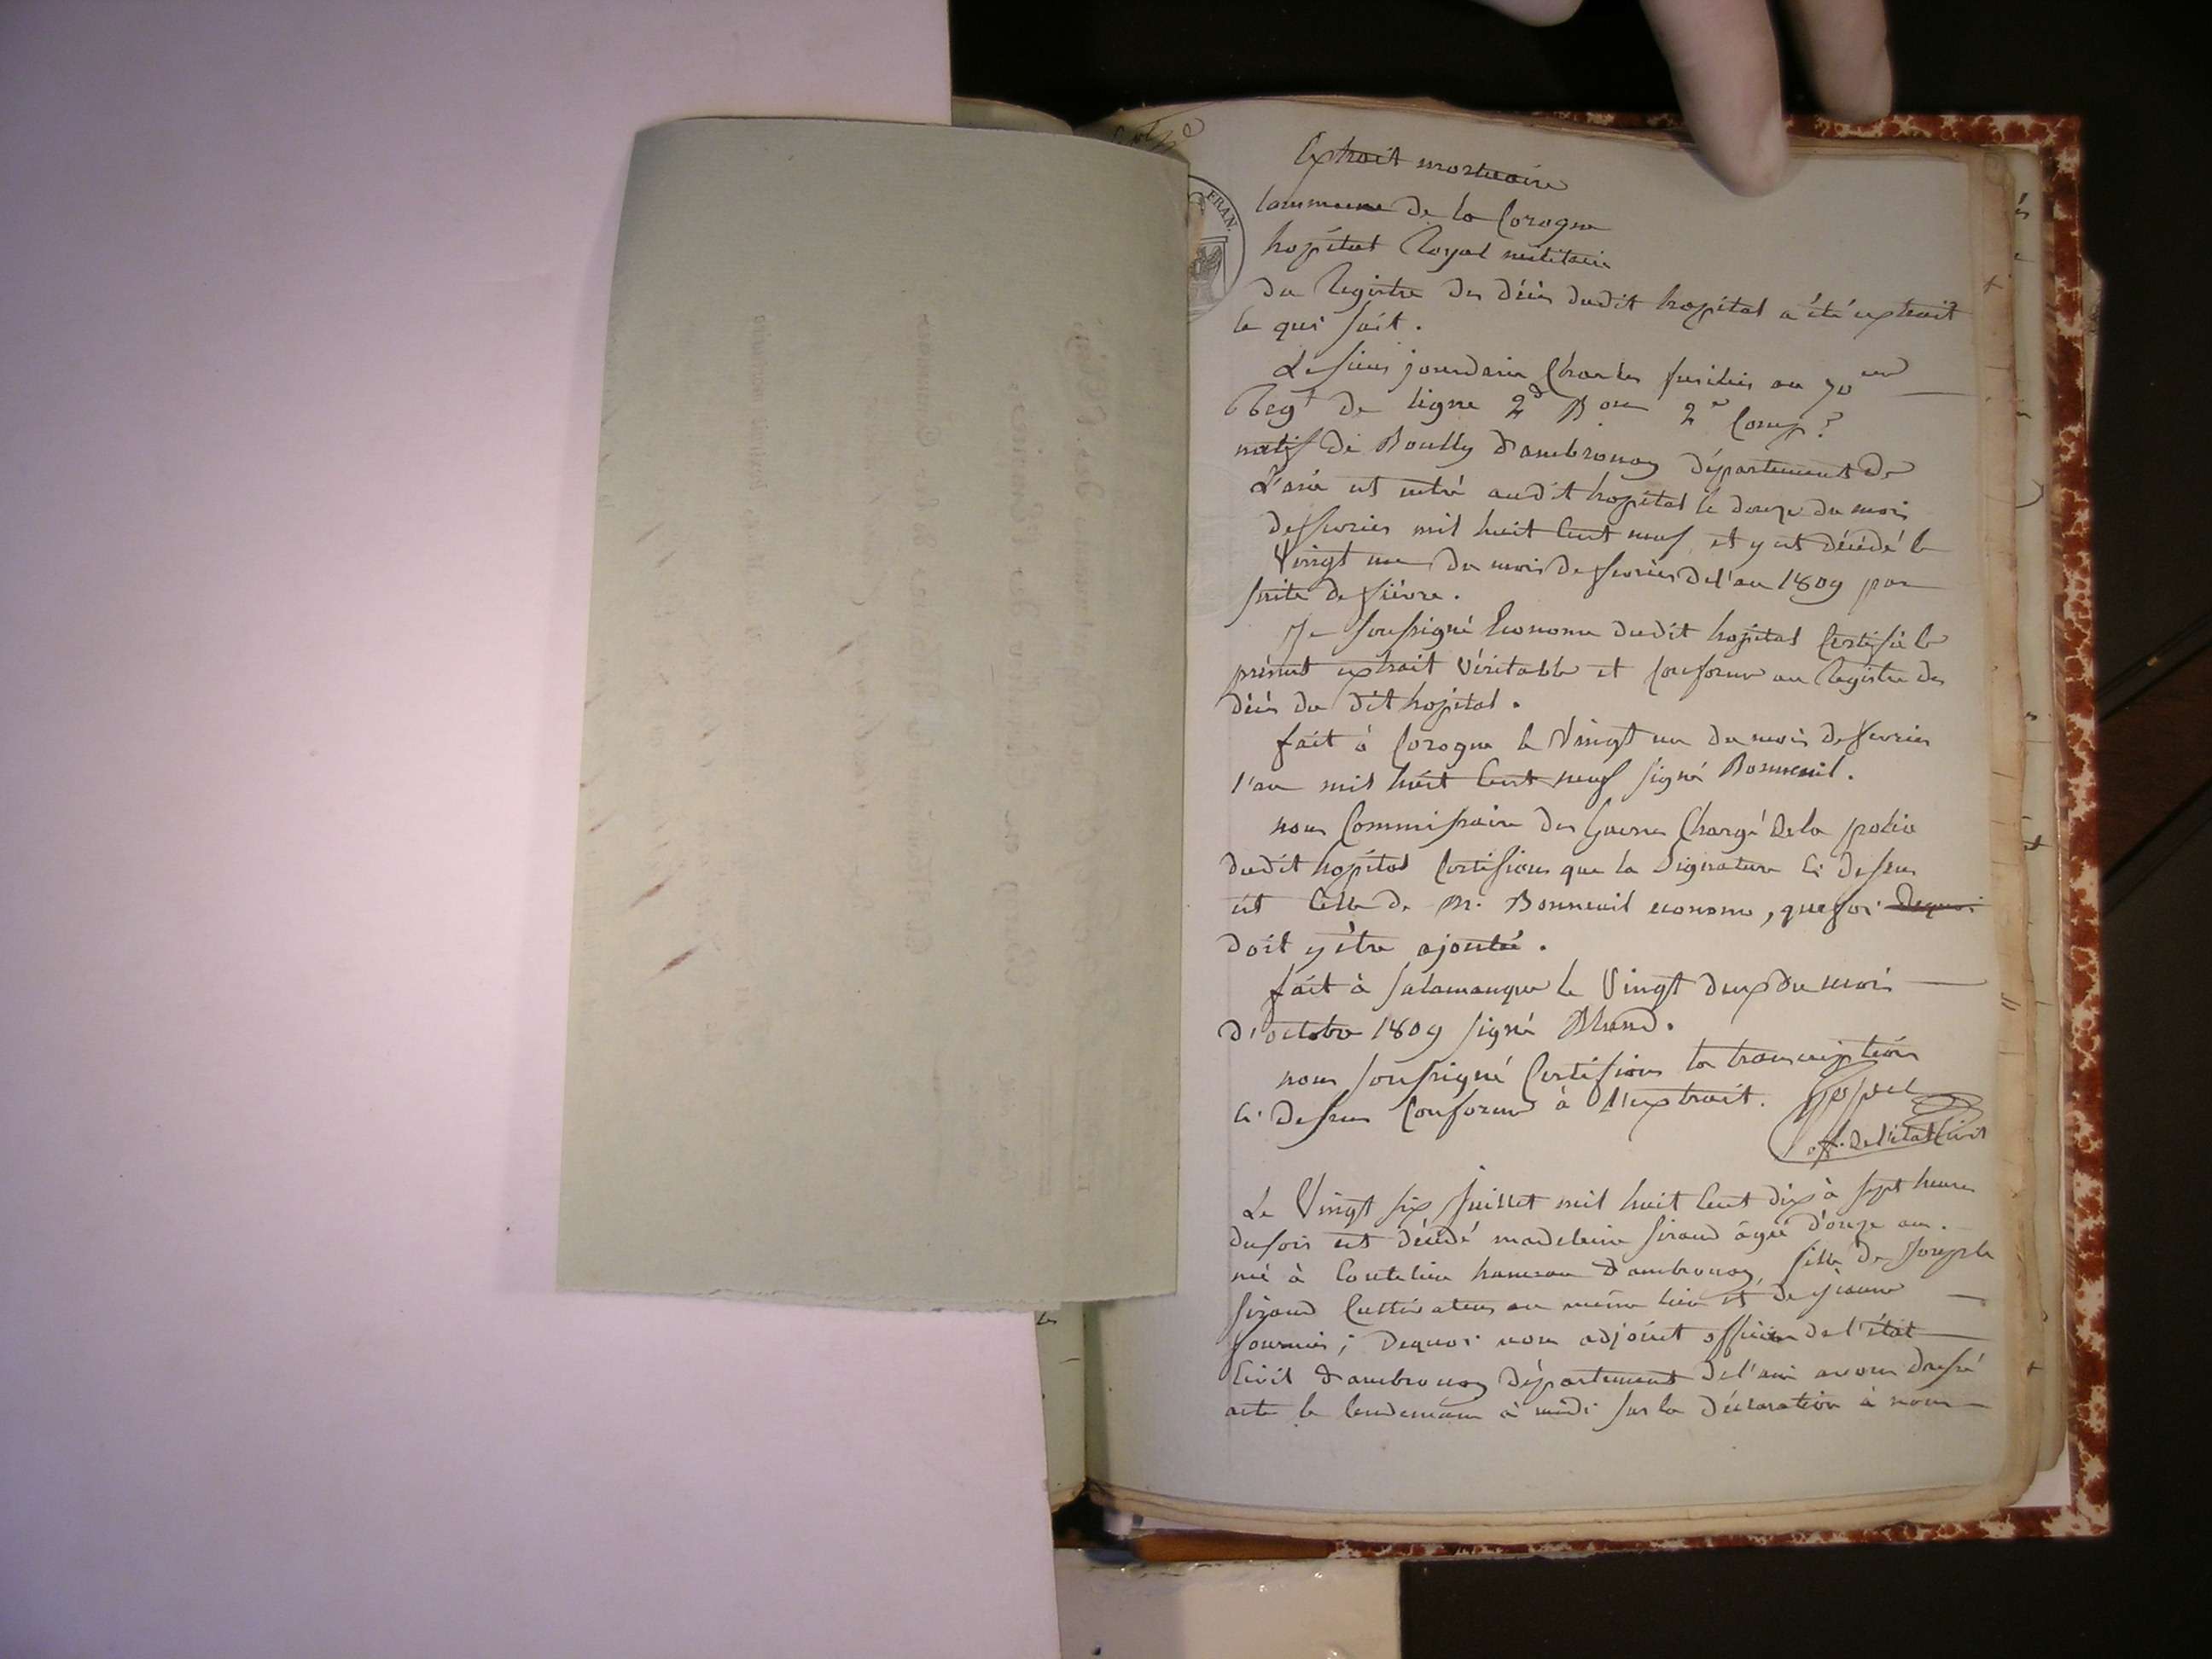 FRAN.
Extrait mortuaire
Commune de la Corogne
hopital Royal militaire
du Registre des décès dudit hopital a été extrait
ce qui suit.
Le sieur jourdain Charles fusilier au 70eme
Regt de ligne 2d Bon 2e Comp?
natif de Boully d'ambronay département de
L'ain est entré audit hopital le douze du mois
de fevrier mil huit Cent neuf et y est décédé le
Vingt un du mois de fevrier de l'an 1809 par
suite de fièvre.
Je soussigné Econome dudit hopital Certifie le
présent extrait Véritable et Conforme au Registre des
décès du dit hopital.
fait à Corogne le Vingt un du mois de fevrier
l'an mil huit Cent neuf signé Bonneuil.
nous Commissaire des Guerres Chargé de la police
dudit hopital Certifions que la Signature Ci dessus
est Celle de Mr. Bonneuil econome, que foi dequoi
doit y être ajoutée.
fait à Salamanque le Vingt deux du mois
d'octobre 1809 signé
nous soussigné Certifions la transcription
Ci dessus Conforme à l'extrait.
off. de l'état Civil
Le Vingt six Juillet mil huit Cent dix à sept heures
du soir est décédé madeleine siraud âgée d'onze ans.
né à Coutelieu hameau d'ambronay, fille de Joseph
siraud Cultivateur au même lieu et de jeanne
fournier; dequoi nous adjoint officier de l'état
Civil d'ambronay département de l'ain avons dressé
acte le lendemain à midi sur la déclaration à nous